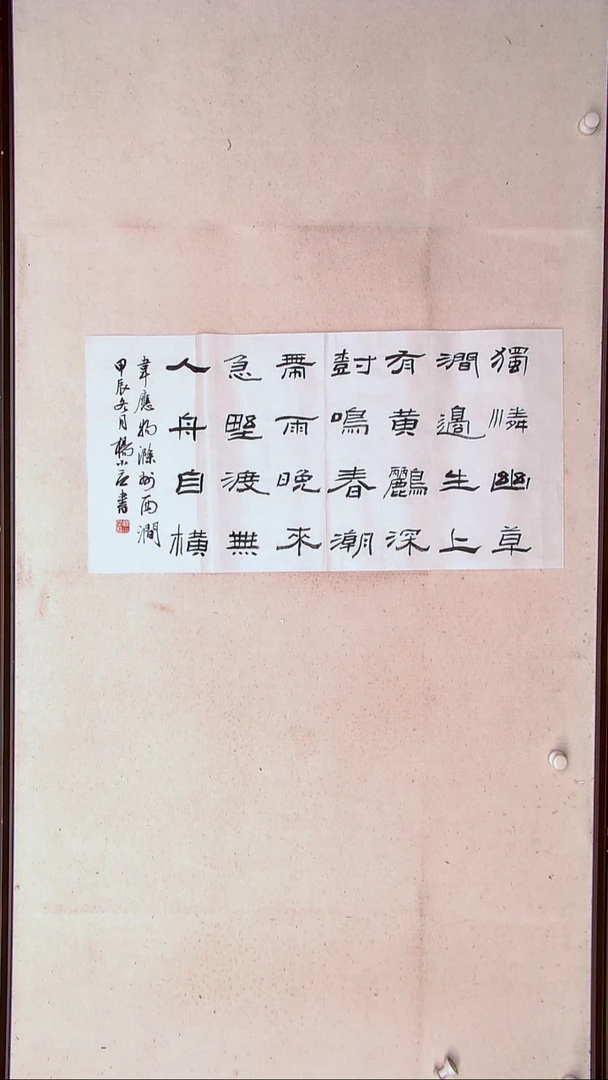 獨憐幽草
澗邊生上
有黃鸝深
尌鳴春潮
帶雨晚來
急野渡無
人舟自橫
韋應物滁州西澗
甲辰冬月 小 書